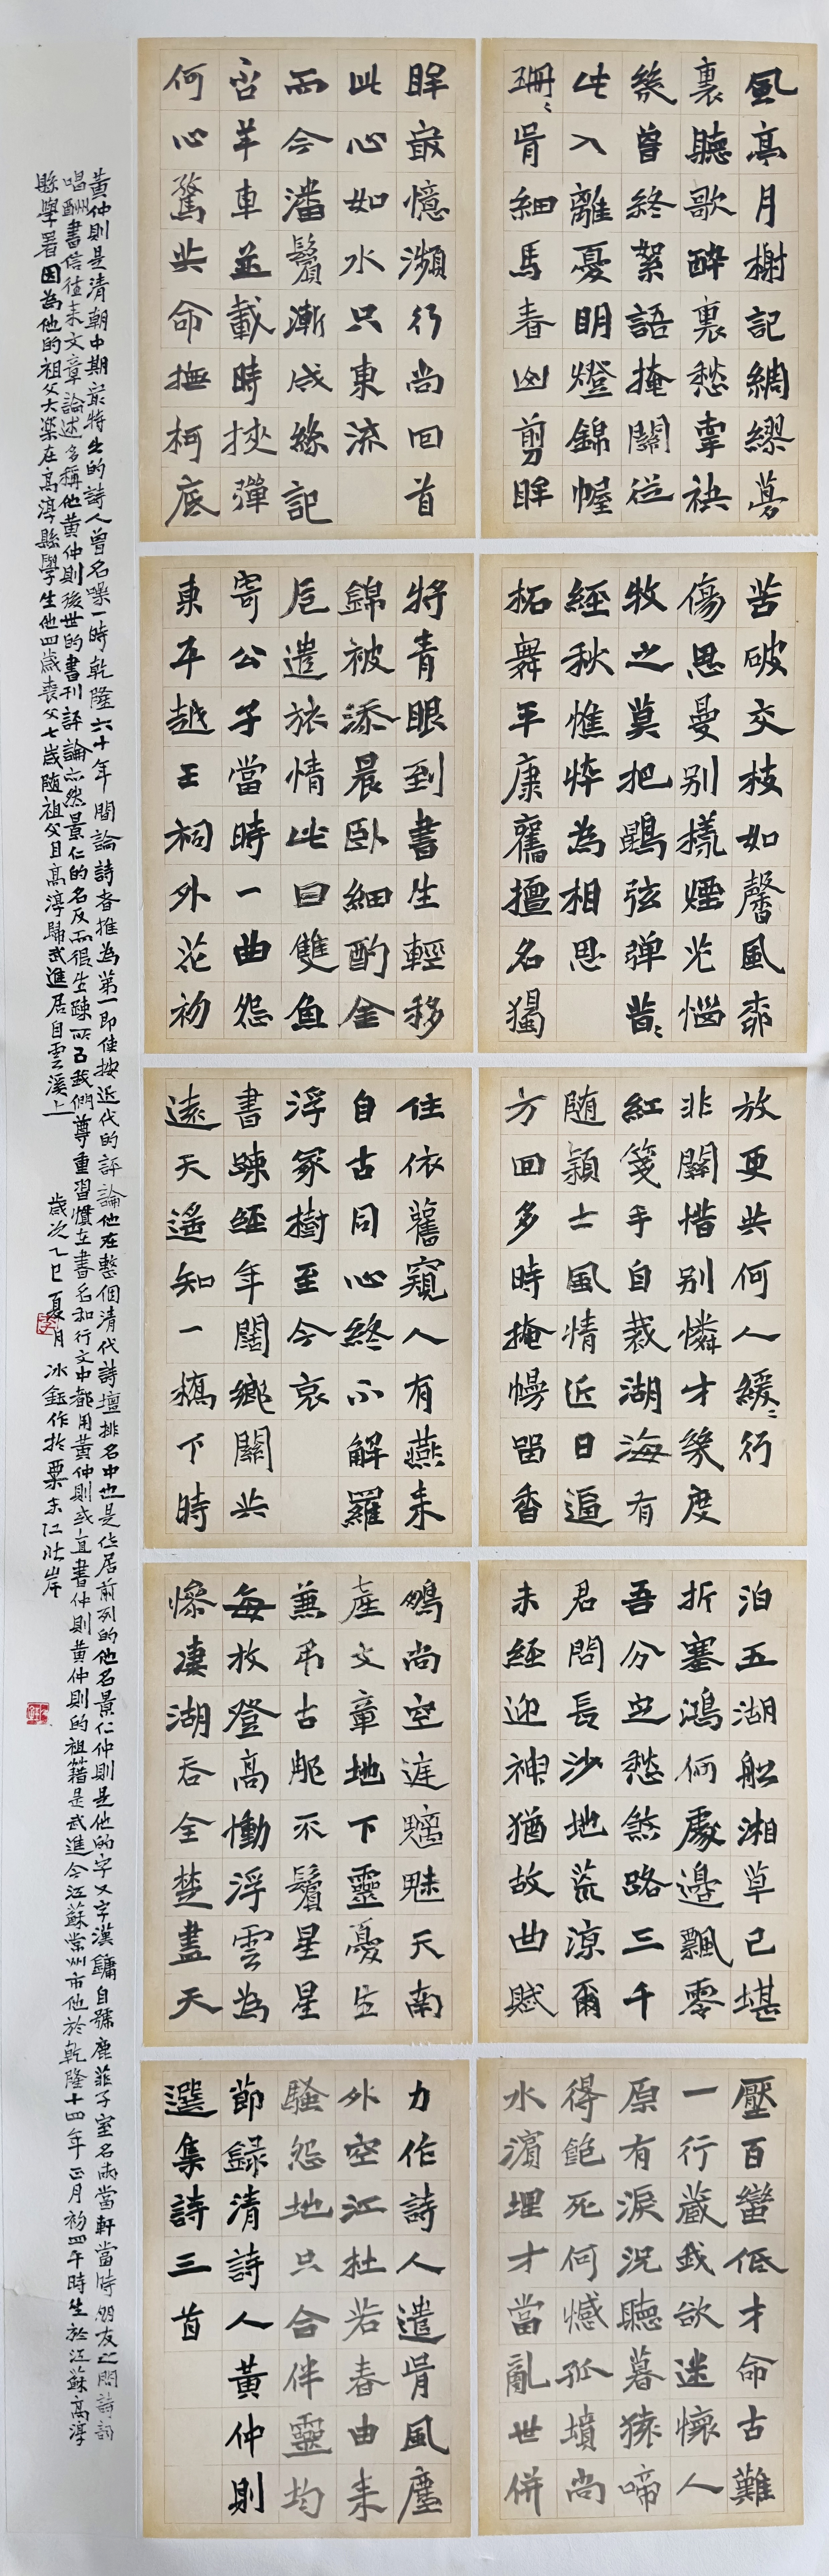 風亭月榭記綢繆夢
裏聽歌醉裏愁牽袂
幾曾終絮語掩關從
此入離憂明燈錦幄
珊々骨細馬春山剪眸
眸最憶瀕行尚回首
此心如水只東流
而今潘鬢漸成絲記
否羊車並載時挾彈
何心驚共命撫柯底
苦破交枝如馨風柳
傷思曼別樣煙光惱
牧之莫把鵾弦彈昔々
經秋憔悴為相思
柘舞平康舊擅名獨
將青眼到書生輕移
錦被添晨臥細酌金
卮遣旅情此日雙魚
寄公子當時一曲怨
東平越王祠外花初
放更共何人緩々行
非關惜別憐才幾度
紅箋手自裁湖海有
隨潁士風情近日逼
方回多時掩幔留香
住依舊窺人有燕來
自古同心終不解羅
浮冢樹至今哀
書疎經年闊鄉關共
遠天遙知一樽下時
泊五湖船湘草已堪
折塞鴻何處邊飄零
吾分定愁煞路三千
君問長沙地荒涼爾
未經迎神猶故曲賦
鵩尚空庭魑魅天南
產文章地下靈憂生
兼弔古那不鬢星星
每放登高慟浮雲為
慘凄湖吞全楚盡天
壓百蠻低才命古難
一行藏我欲迷懷人
原有淚況聽暮猿啼
得飽死何憾孤墳尚
水濱埋才當亂世併
力作詩人遣骨風塵
外空江杜若春由來
騷怨地只合伴靈均
節錄清詩人黃仲則
選集詩三首
黃仲則是清朝中期最特出的詩人曾名噪一時乾隆六十年間論詩者推為第一即使按近代的評論他在整個清代詩壇排名中也是位居前列的他名景仁仲則是他的字又字漢鏞自號鹿菲子室名兩當軒當時朋友之間詩詞
唱酬書信往來文章論述多稱他黃仲則後世的書刊評論亦然景仁的名反而很生疎所以我們尊重習慣在書名和行文中都用黃仲則或直書仲則黃仲則的祖籍是武進今江蘇常州市他於乾隆十四年正月初四午時生於江蘇高淳
縣學署因為他的祖父大樂在高淳縣學生他四歲喪父七歲隨祖父自高淳歸武進居白雲溪上
歲次乙巳夏月冰鈺作於粟末江北岸